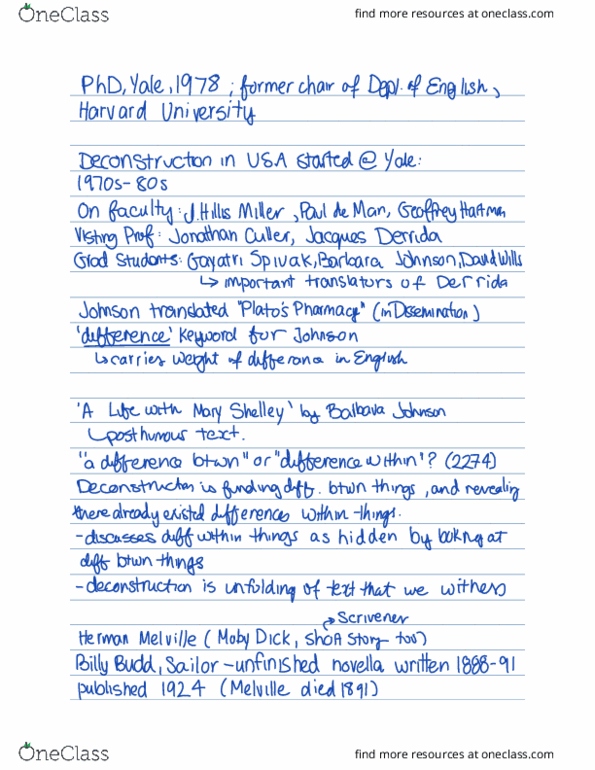 OneClass
find more resources at oneclass.com
PhD, Yale, 1978 ; former chair of Dept. of English,
Harvard University
Deconstruction in USA started @ Yale:
1970s-80s
On faculty: J.Hillis Miller, Paul de Man, Geoffrey Hartman
Visting Prof: Jonathan Culler, Jacques Derrida
Grad Students: Gayatri Spivak, Barbara Johnson, David Wills
↳ important translators of Derrida
Johnson translated "Plato's Pharmacy" (in Dissemination)
'difference' keyword for Johnson
↳ carries weight of differance in English
'A Life with Mary Shelley' by Balbava Johnson
↳ posthumous text.
"a difference btwn" or "difference within"? (2274)
Deconstruction is funding diff. btwn things, and revealing
there already existed differences within things.
- discusses diff within things as hidden by looking at
diff btwn things
- deconstruction is unfolding of text that we witness
↱ Scrivener
Herman Melville (Moby Dick, short story too)
Billy Budd, Sailor - unfinished novella written 1888-91
published 1924 (Melville died 1891)
OneClass
find more resources at oneclass.com